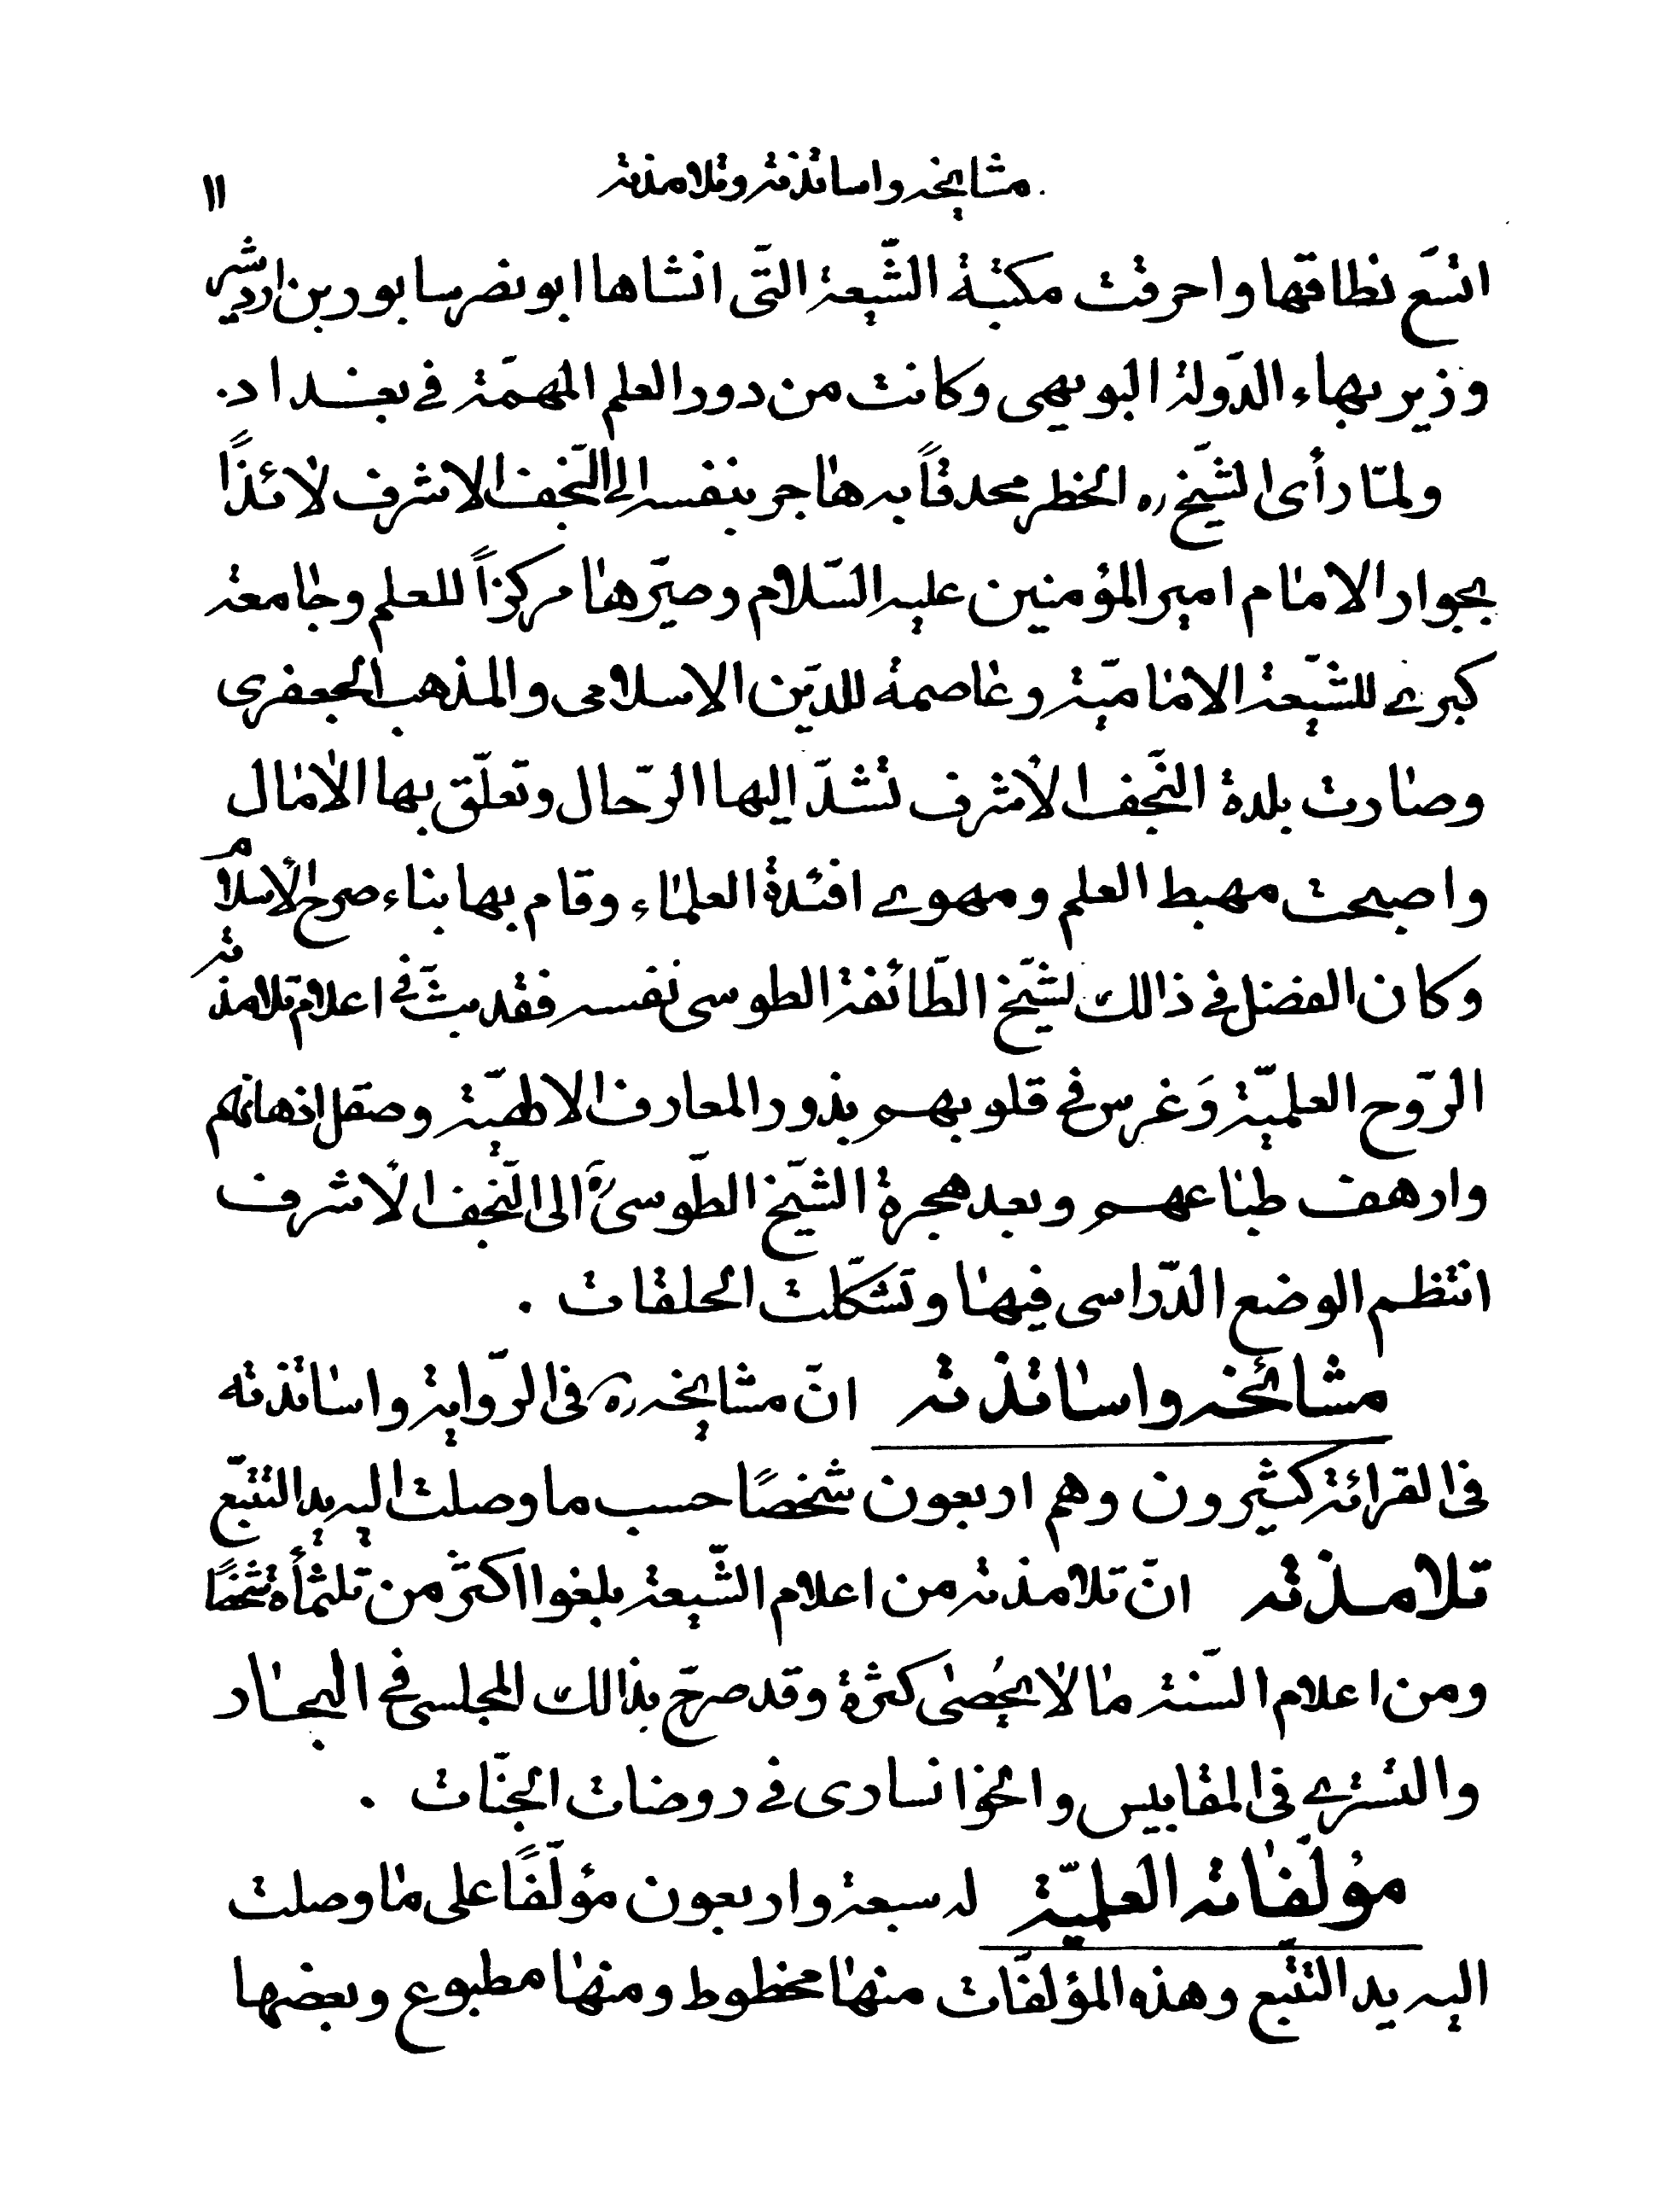 مشايخه واساتذته وتلامذته
١١
اتسّع نطاقها واحرقت مكتبة الشّيعة التّى انشاها ابو نصر سابور بن اردشير
وزير بهاء الدّولة البويهى وكانت من دور العلم المهمّة فى بغداد.
ولمّا رأى الشّيخ ره الخطر محدقاً به هاجر بنفسه الى النّجف الاشرف لائذاً
بجوار الامام امير المؤمنين عليه السّلام وصيّرها مركزاً للعلم وجامعة
كبرى للشّيعة الاماميّة وعاصمة للدّين الاسلامى والمذهب الجعفرى
وصارت بلدة النّجف الأشرف تشدّ اليها الرّحال وتعلّق بها الامال
واصبحت مهبط العلم ومهوى افئدة العلماء وقام بها بناء صرح الأسلام
وكان الفضل فى ذالك لشيّخ الطّائفة الطوسى نفسه فقد بثّ فى اعلام تلامذته
الرّوح العلميّة وَغرس فى قلوبهم بذور المعارف الالهيّة وصقل اذهانهم
وارهف طباعهم وبعد هجرة الشّيخ الطّوسى ره الى النّجف الأشرف
انتظم الوضع الدّراسى فيها وتشكّلت الحلقات .
مشائخه واساتذته انّ مشايخه ره فى الرّواية واساتذته
فى القرائة كثيرون وهم اربعون شخصًا حسب ما وصلت اليه يد التتبّع
تلامذته انّ تلامذته من اعلام الشّيعة بلغوا اكثر من ثلثمأة شخصًا
ومن اعلام السّنة ما لا يُحصى كثرة وقد صرّح بذالك المجلسى فى البحار
والتسترى فى المقابيس والخوانسارى فى روضات الجنّات .
مؤلّفاته العلميّة له سبعة واربعون مؤلّفًا على ما وصلت
اليه يد التتبّع وهذه المؤلفّات منها مخطوط ومنها مطبوع وبعضها